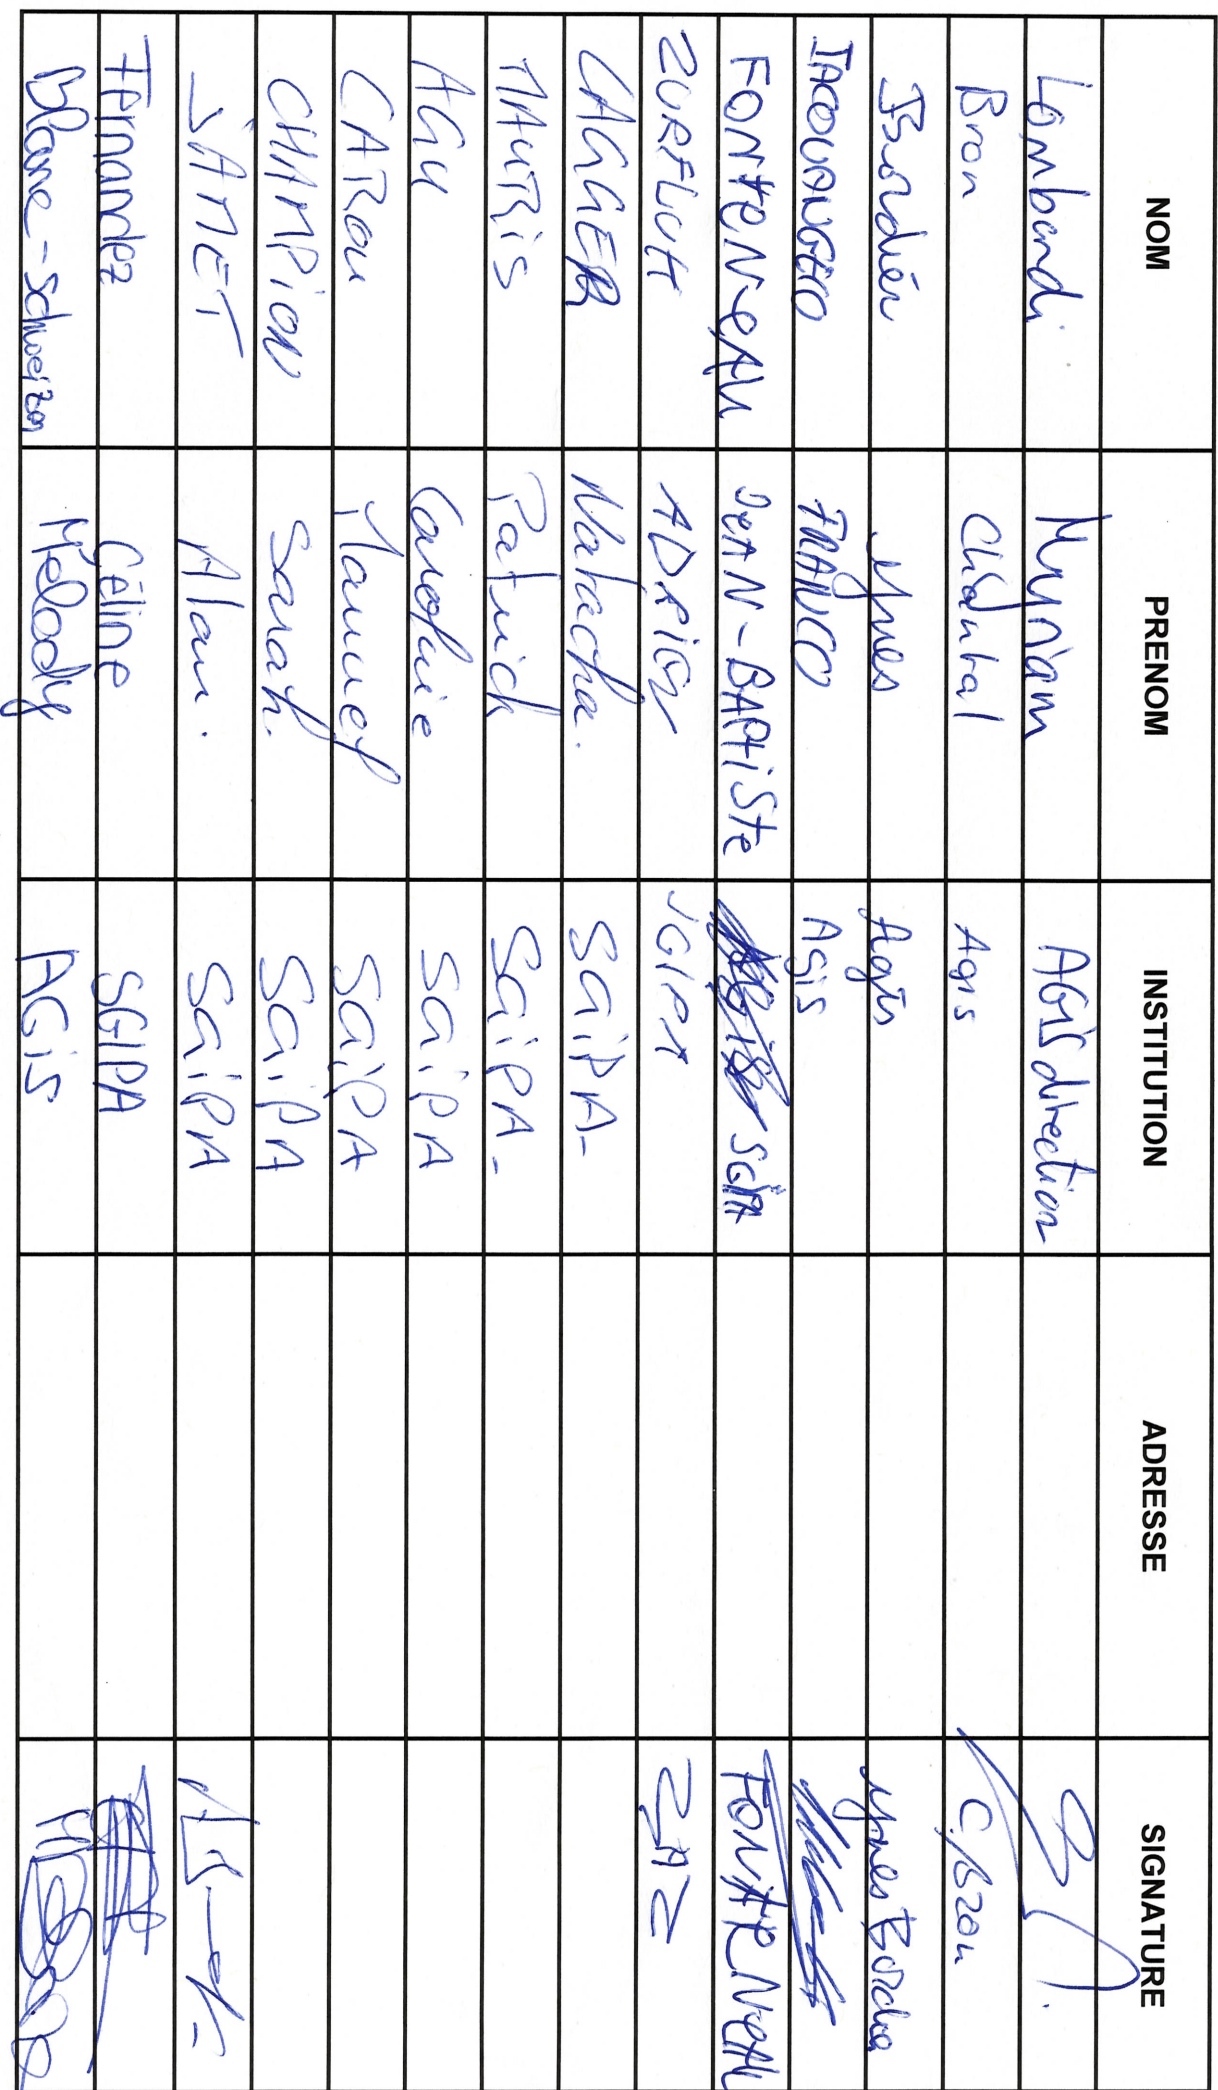 NOM PRENOM INSTITUTION ADRESSE SIGNATURE
Lombardi Myriam AGIS direction
Bron Chantal Agis C. Bron
Bordier Yves Agis Yves Bordier
IACOVANGELO FRANCO Agis
FONTENEAU JEAN-BAPtiSte SGIPA FONTENEAU
ZURFLUH ADRIEN SGIPA ZAZ
GAGGER Natacha. SGIPA-
MAURIS Patrick SGIPA-
AGU Caroline SGIPA
CAROU Manuel SGIPA
CHAMPION Sarah. SGIPA
JAMET Alan. SGIPA
Fernandez Céline SGIPA
Blanc-Schweizer Mélody AGIS